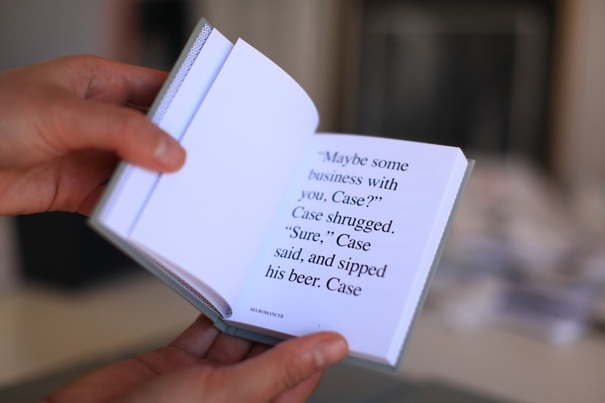 “Maybe some
business with
you, Case?”
Case shrugged.
“Sure,” Case
said, and sipped
his beer. Case
NECROMANCER